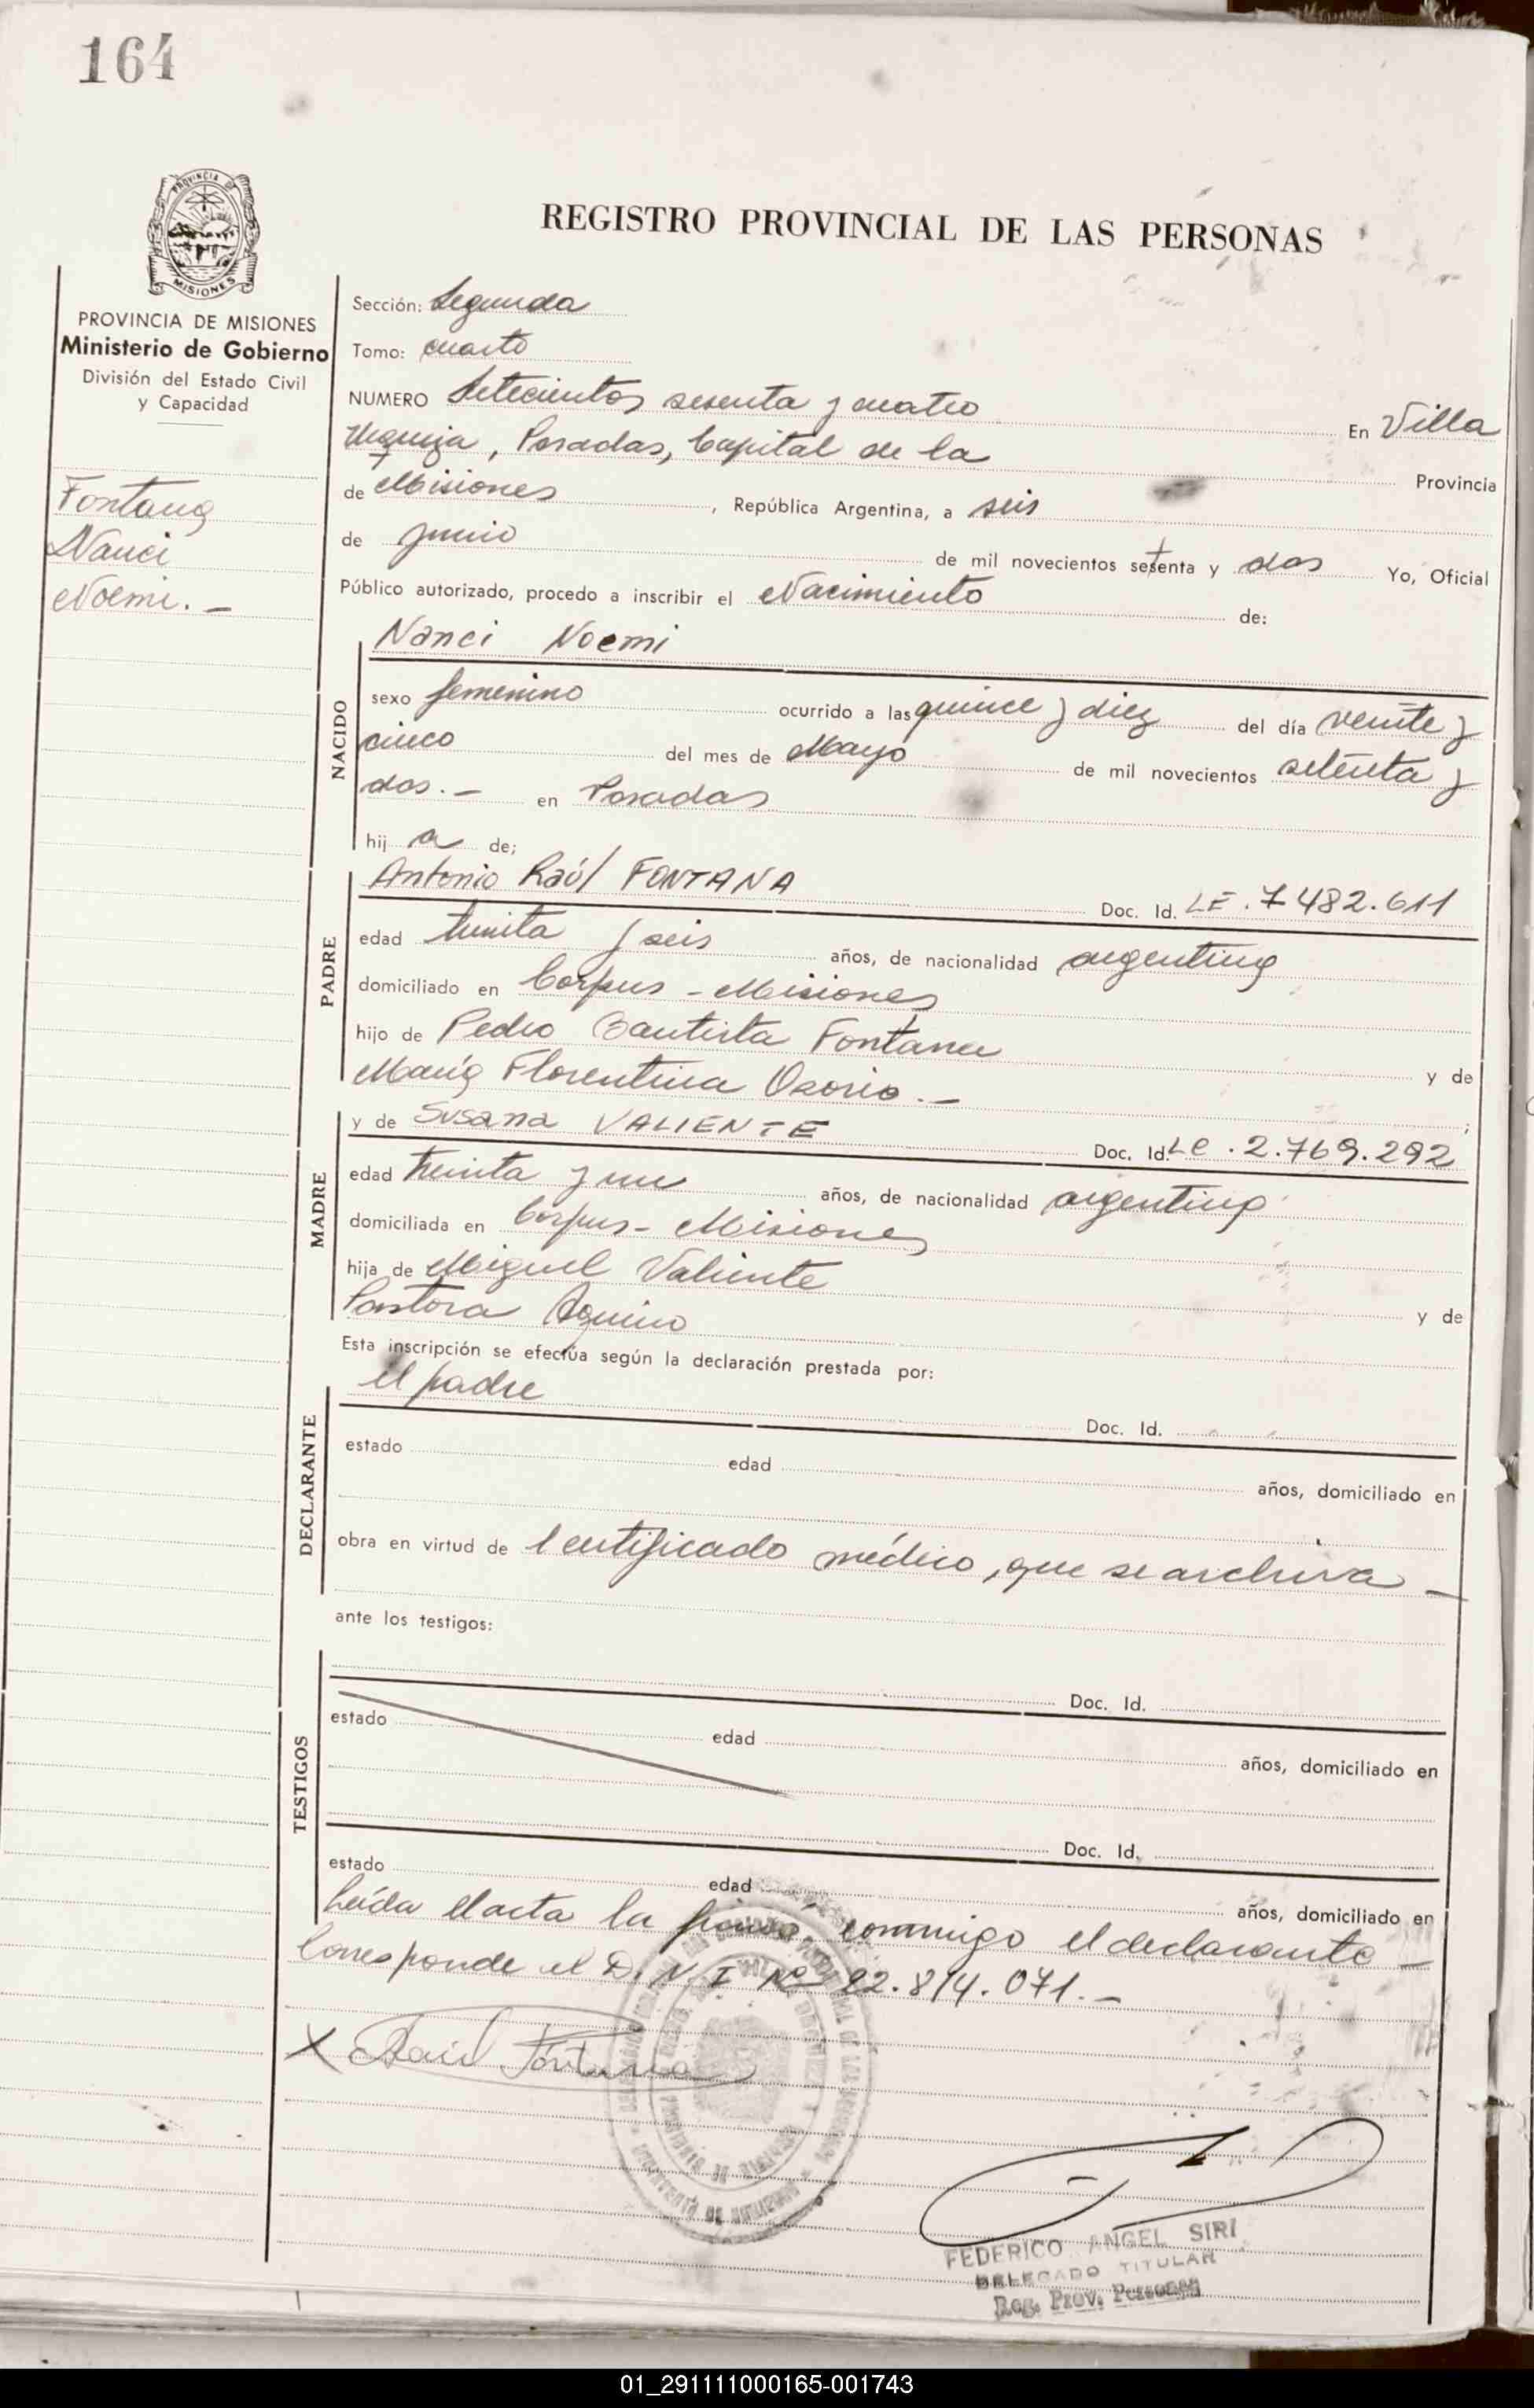 164
PROVINCIA DE
MISIONES
REGISTRO PROVINCIAL DE LAS PERSONAS
PROVINCIA DE MISIONES
Ministerio de Gobierno
División del Estado Civil
y Capacidad
Fontana
Nanci
Noemi. –
Sección: Segunda
Tomo: cuarto
NUMERO Setecientos sesenta y cuatro En Villa
Urquiza, Posadas, Capital de la Provincia
de Misiones, República Argentina, a seis
de junio de mil novecientos setenta y dos Yo, Oficial
Público autorizado, procedo a inscribir el Nacimiento de:
NACIDO
Nanci Noemi
sexo femenino ocurrido a las quince y diez del día veinte y
cinco del mes de Mayo de mil novecientos setenta y
dos. – en Posadas
hij a de;
PADRE
Antonio Raúl FONTANA Doc. Id. LE. 7482.611
edad treinta y seis años, de nacionalidad argentina
domiciliado en Corpus - Misiones
hijo de Pedro Bautista Fontana y de
María Florentina Osorio. – ;
MADRE
y de Susana VALIENTE Doc. Id. LC. 2.769.292
edad treinta y un años, de nacionalidad argentina
domiciliada en Corpus - Misiones
hija de Miguel Valiente y de
Pastora Aquino
Esta inscripción se efectúa según la declaración prestada por:
DECLARANTE
el padre Doc. Id.
estado edad años, domiciliado en
obra en virtud de Certificado médico, que se archiva –
ante los testigos:
TESTIGOS
Doc. Id.
estado edad años, domiciliado en
Doc. Id.
estado edad años, domiciliado en
Leída el acta la firmó, conmigo el declarante –
Corresponde el D.N.I Nº 22.814.071. –
X Raúl Fontana
FEDERICO ANGEL SIRI
DELEGADO TITULAR
Reg. Prov. Personas
01_291111000165-001743